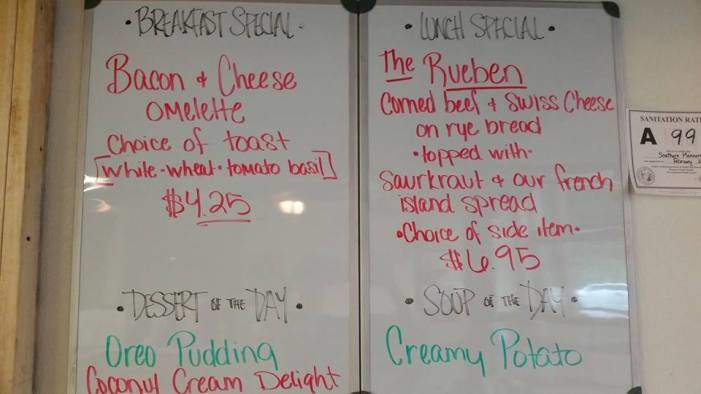 • BREAKFAST SPECIAL •
Bacon + Cheese
omelette
Choice of toast
[white • wheat • tomato basil]
$4.25
• DESSERT OF THE DAY •
Oreo Pudding
Coconut Cream Delight
• LUNCH SPECIAL •
The Rueben
Corned beef + Swiss Cheese
on rye bread
• topped with •
Saurkraut + our french
island spread
• Choice of side item •
$6.95
• SOUP OF THE DAY •
Creamy Potato
SANITATION RATI
A 99